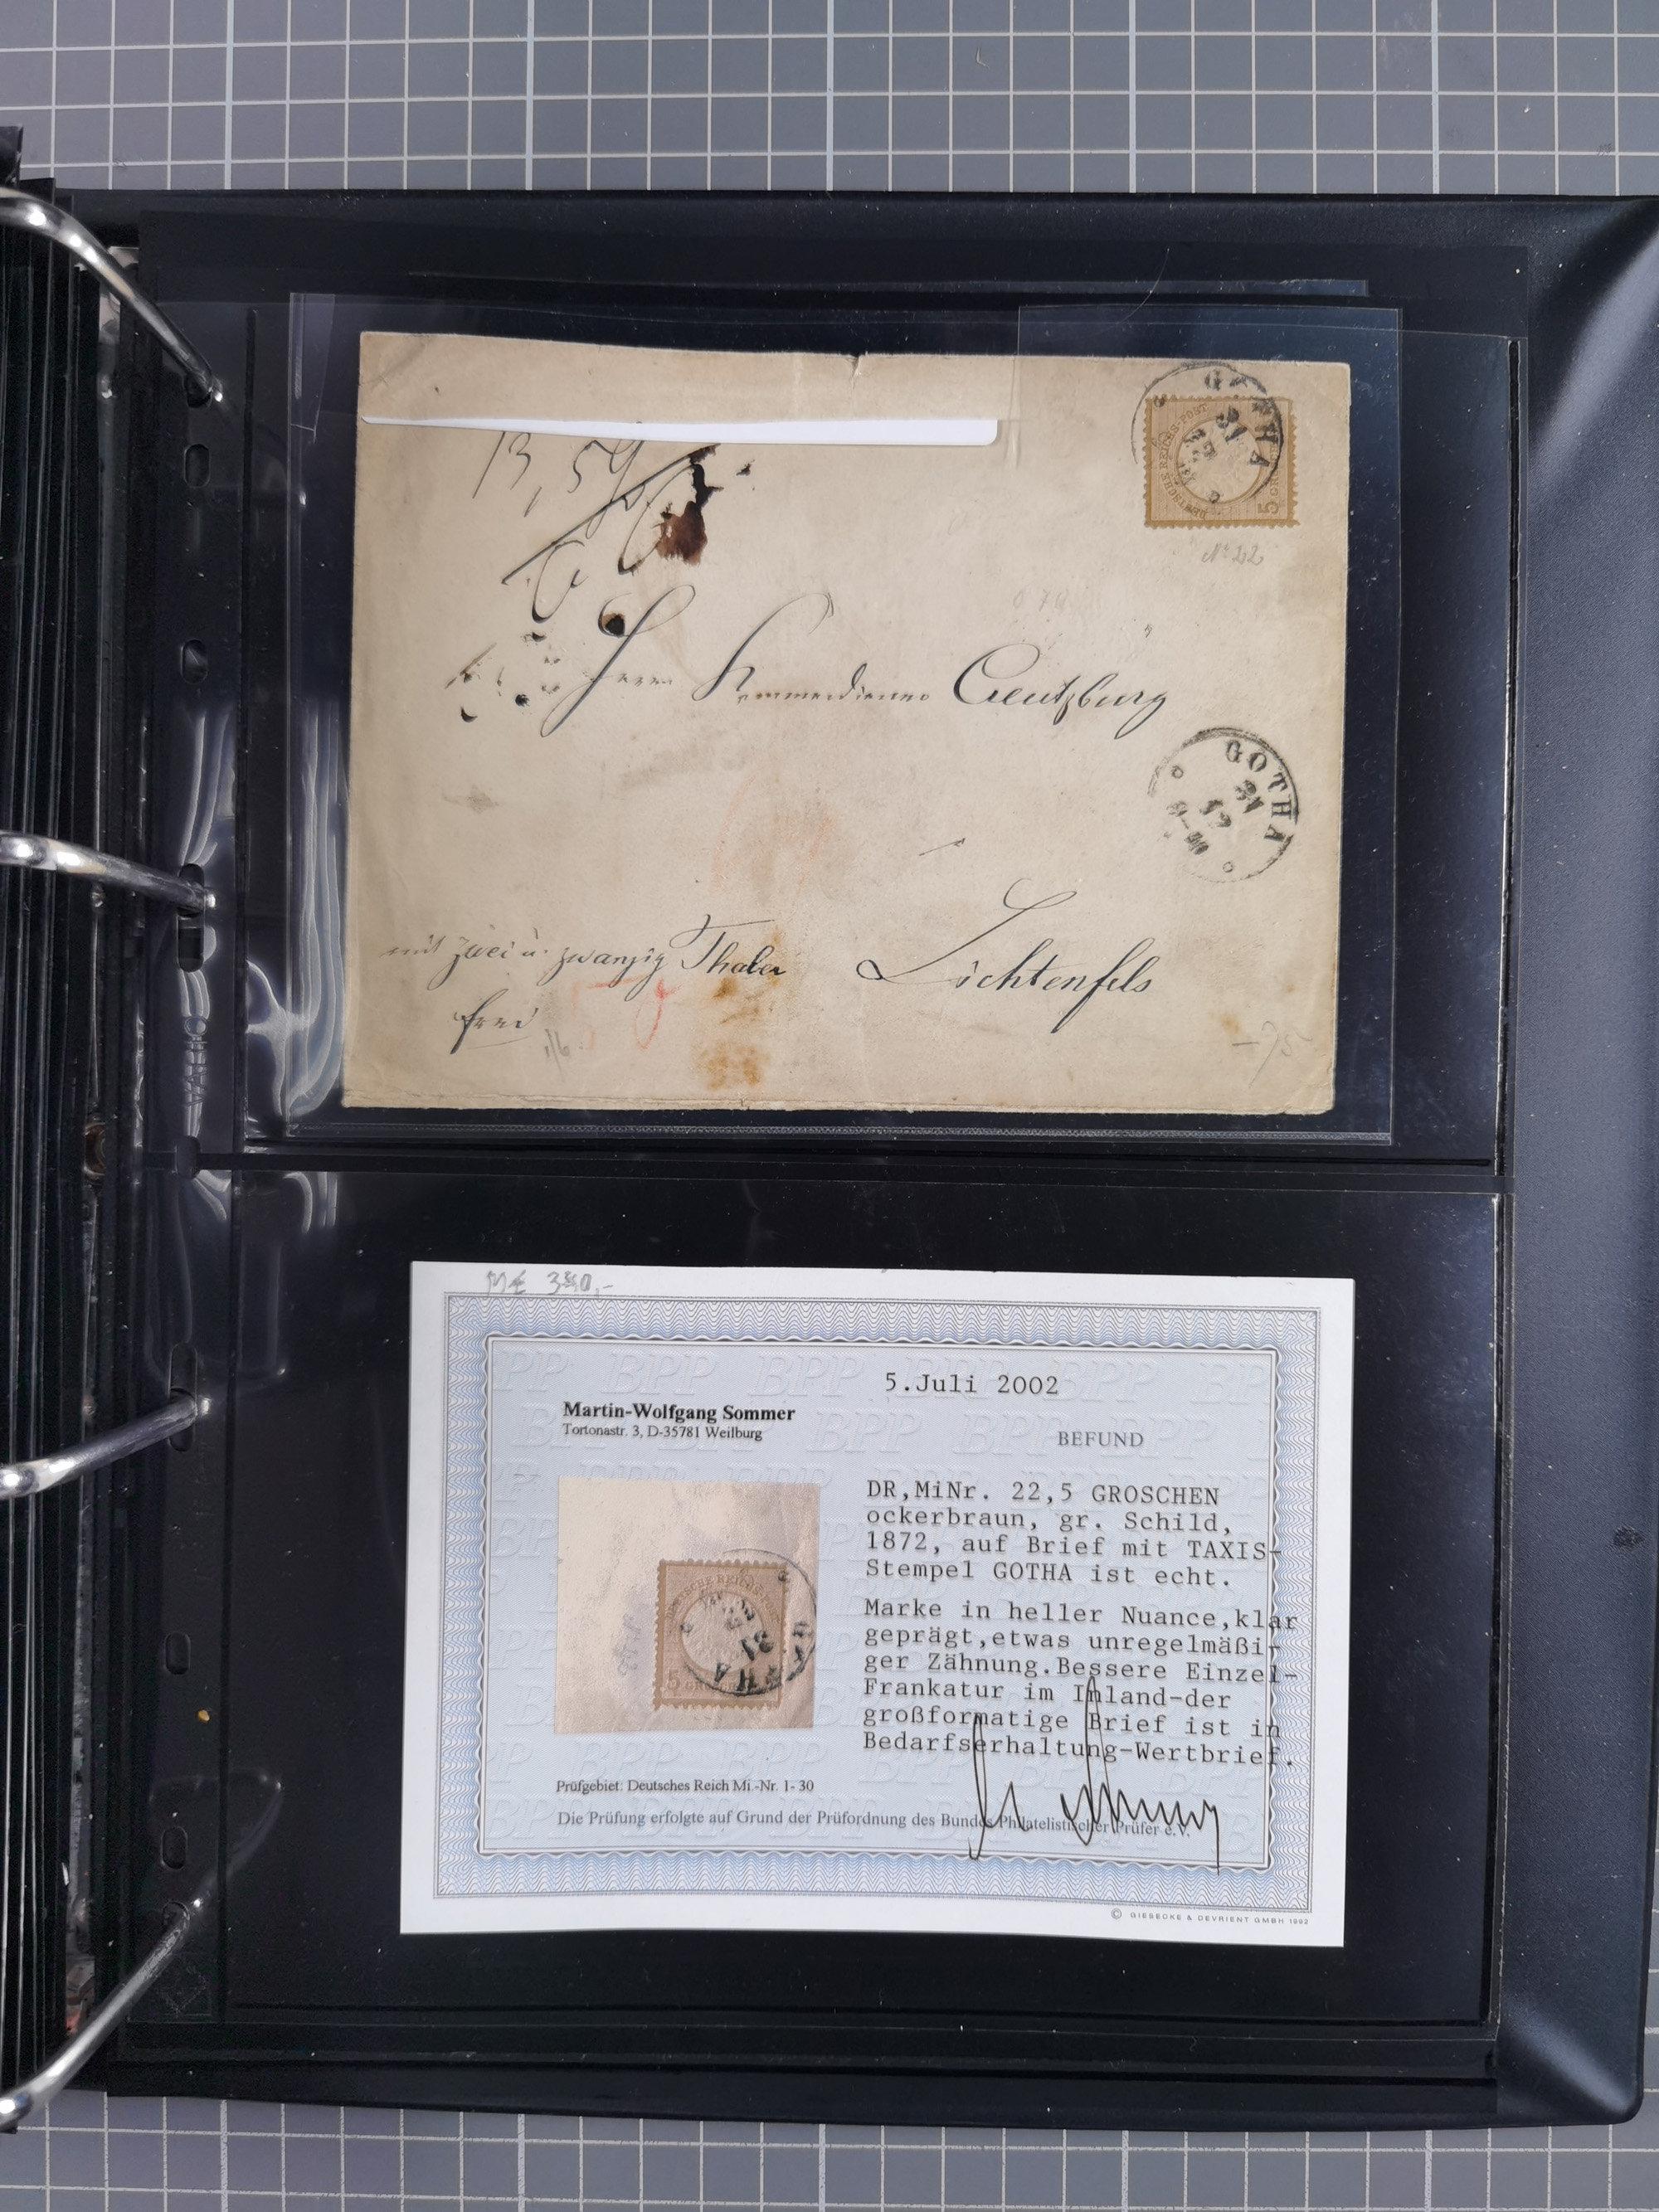 GOTHA
31
DEUTSCHE REICHS-POST
5 GR
No 22
Herrn
Creutzburg
GOTHA
31
12
mit zwei u. zwanzig Thaler
Lichtenfels
frei
M€ 380,-
5.Juli 2002
Martin-Wolfgang Sommer
Tortonastr. 3, D-35781 Weilburg
BEFUND
DR,MiNr. 22,5 GROSCHEN
ockerbraun, gr. Schild,
1872, auf Brief mit TAXIS-
Stempel GOTHA ist echt.
Marke in heller Nuance,klar
geprägt,etwas unregelmäßi-
ger Zähnung.Bessere Einzel-
Frankatur im Inland-der
großformatige Brief ist in
Bedarfserhaltung-Wertbrief.
Prüfgebiet: Deutsches Reich Mi.-Nr. 1- 30
Die Prüfung erfolgte auf Grund der Prüfordnung des Bundes Philatelistischer Prüfer e.V.
© GIESECKE & DEVRIENT GMBH 1992